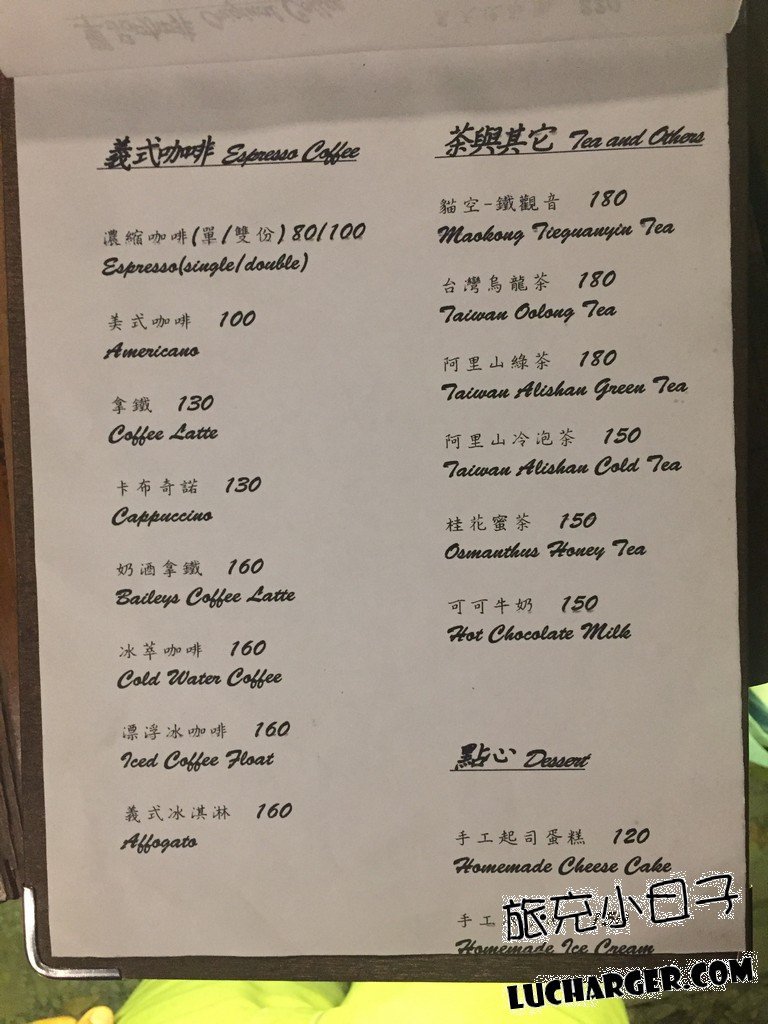 義式咖啡 Espresso Coffee
濃縮咖啡(單/雙份)80/100
Espresso(single/double)
美式咖啡 100
Americano
拿鐵 130
Coffee Latte
卡布奇諾 130
Cappuccino
奶酒拿鐵 160
Baileys Coffee Latte
冰萃咖啡 160
Cold Water Coffee
漂浮冰咖啡 160
Iced Coffee Float
義式冰淇淋 160
Affogato
茶與其它 Tea and Others
貓空-鐵觀音 180
Maokong Tieguanyin Tea
台灣烏龍茶 180
Taiwan Oolong Tea
阿里山綠茶 180
Taiwan Alishan Green Tea
阿里山冷泡茶 150
Taiwan Alishan Cold Tea
桂花蜜茶 150
Osmanthus Honey Tea
可可牛奶 150
Hot Chocolate Milk
點心 Dessert
手工起司蛋糕 120
Homemade Cheese Cake
手工
Homemade Ice Cream
旅充小日子
LUCHARGER.COM